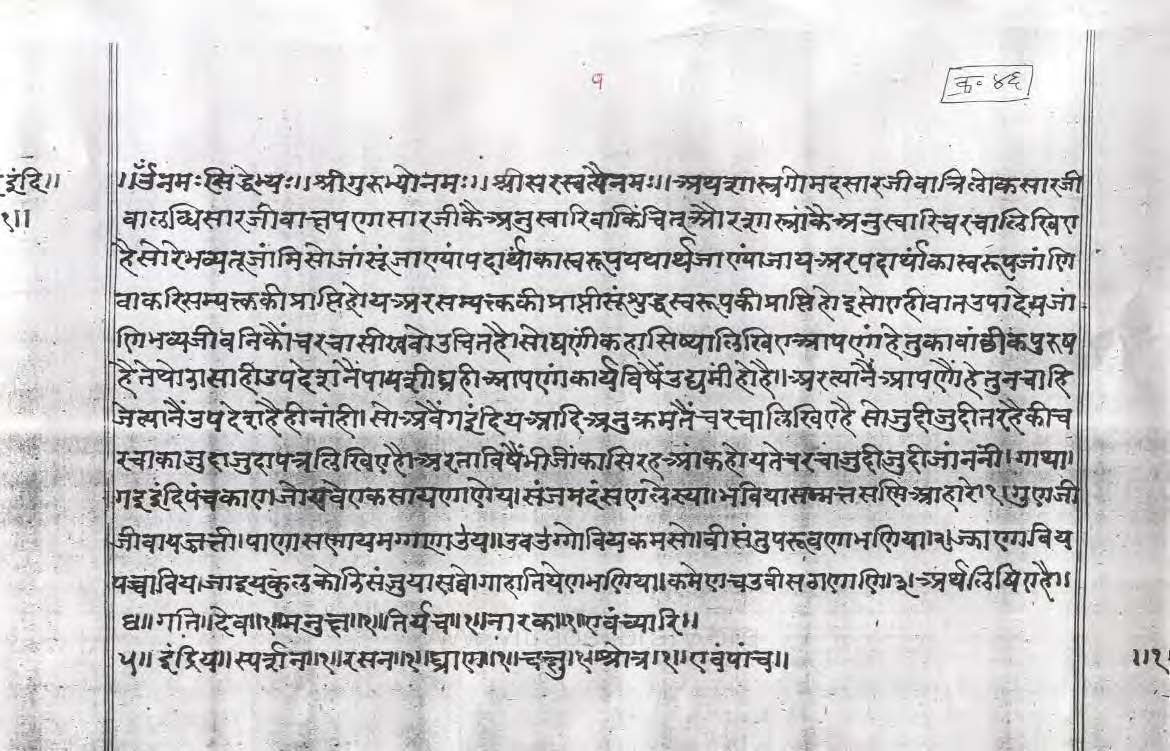 १
क्र॰ ४६
इंदि॥
१॥
॥ॐनमःसिद्धेभ्यः॥श्रीगुरुभ्योनमः॥श्रीसरस्वत्यैनमः॥अथशास्त्रगोमटसारजीवात्रिलोकसारजी
वालब्धिसारजीवाक्षपणासारजीकैअनुस्वारिवाकिंचित्औरशास्त्रांकैअनुस्वारिचरचालिखिए
हैसोरेभव्यतूजांनिसोजांसूंजाण्यांपदार्थांकास्वरूपयथार्थजाण्यांजायअरपदार्थांकास्वरूपजांणि
वाकरिसम्यक्तकीप्राप्तिहोयअरसम्यक्तकीप्राप्तीसूंशुद्धस्वरूपकीप्राप्तिहोइसोएहीवातउपादेयजां
णिभव्यजीवनिकौंचरचासीखवोउचितहै।सोघणींकहासिष्यालिखिएआपणांहेतुकावांछीकपुरुष
हैतेथोडासाहीउपदेशनैंपायशीघ्रहीआपणांकार्यविषैंउद्यमीहोहै॥अरत्यांनैंआपणौंहेतुनचाहि
जेत्यानैंउपदेशहैहीनांही।सोअंवैंगइइंदियआदिअनुक्रमतैंचरचालिखिएहै सोजुदीजुदीतरहैकीच
रचाकाजुदाजुदापत्रलिखिएहै।अरताविषैंभीजींकासिरहआंकहोयतेचरचांजुदीजुदीजांननी।गाथा।
गइइंदिपंचकाए।जोयेवेएकसायणाणेय।संजमदंसणलेस्या।भवियासम्मत्तसण्णिआहारे।१।गुणजी
जीवापज्जत्ती।पाणासण्णायमग्गणाउय॥उवउग्गोवियकमसो।वीसंतुपरूवणाभणिया।२।ज्झाणाविय
पच्चाविय।जाइयकुलकोडिसंजुयासव्वे।गाहातियेणभणिया।कमेणचउवीसठाणाणि।३।अर्थलिषिएहै॥
४॥गति।देव॥१॥मनुक्ष॥१॥तिर्यंच॥१॥नारक॥१॥एवंच्यारि॥
५॥ इंद्रिय॥स्पर्शन॥१॥रसन॥१॥घ्राण॥१॥चक्षु॥१॥श्रोत्र॥१॥एवंपांच॥
॥१